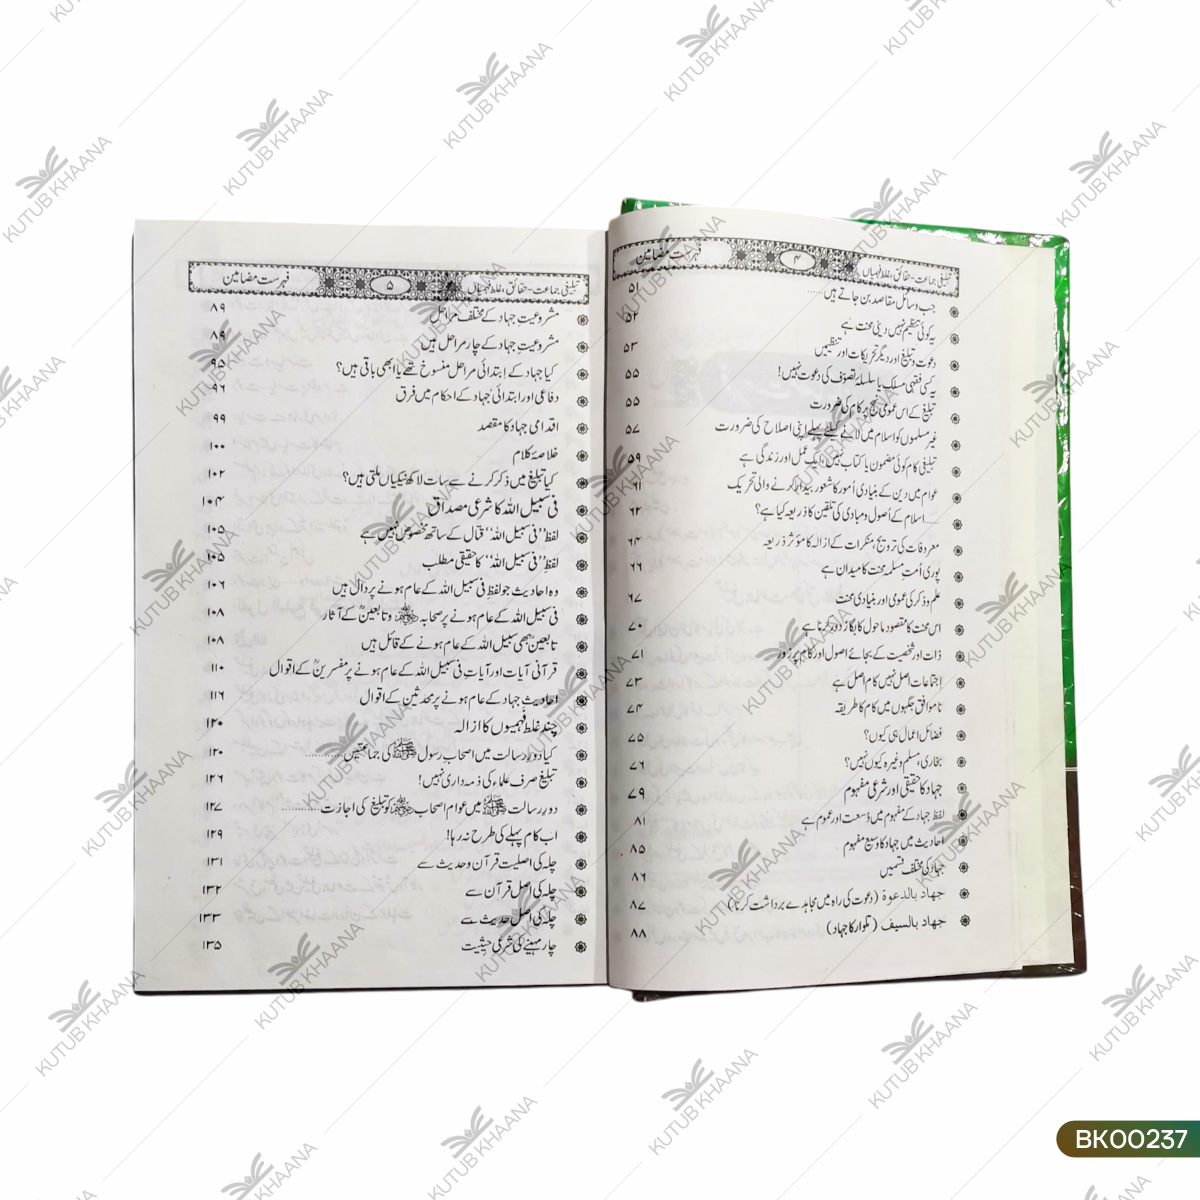 تبلیغی جماعت - حقائق، غلط فہمیاں ۴ فہرست مضامین
جب وسائل مقاصد بن جاتے ہیں........ ۵۱
یہ کوئی تنظیم نہیں دینی محنت ہے ۵۲
دعوت و تبلیغ اور دیگر تحریکات اور تنظیمیں ۵۳
یہ کسی فقہی مسلک یا سلسلۂ تصوف کی دعوت نہیں! ۵۵
تبلیغ کے اس عمومی نہج پر کام کی ضرورت ۵۵
غیر مسلموں کو اسلام میں لانے کیلئے پہلے اپنی اصلاح کی ضرورت ۵۷
تبلیغی کام کوئی مضمون یا کتاب نہیں، ایک عمل اور زندگی ہے ۵۹
عوام میں دین کے بنیادی اُمور کا شعور بیدار کرنے والی تحریک ۶۱
.....اسلام کے اُصول و مبادی کی تلقین کا ذریعہ کیا ہے؟ ۶۲
معروفات کی ترویج، منکرات کے ازالہ کا مؤثر ذریعہ ۶۴
پوری اُمتِ مسلمہ محنت کا میدان ہے ۶۶
علم و ذکر کی عمومی اور بنیادی محنت ۶۷
اس محنت کا مقصود ماحول کا بگاڑ دور کرنا ہے ۷۰
ذات اور شخصیت کے بجائے اصول اور کام پر زور ۷۱
اجتماعات اصل نہیں کام اصل ہے ۷۳
ناموافق جگہوں میں کام کا طریقہ ۷۴
فضائل اعمال ہی کیوں؟ ۷۵
بخاری، مسلم وغیرہ کیوں نہیں؟ ۷۶
جہاد کا حقیقی اور شرعی مفہوم ۷۹
لفظ جہاد کے مفہوم میں وُسعت اور عموم ہے ۸۱
احادیث میں جہاد کا وسیع مفہوم ۸۵
جہاد کی مختلف قسمیں ۸۶
جهاد بالدعوة (دعوت کی راہ میں مجاہدے برداشت کرنا) ۸۷
جهاد بالسيف (تلوار کا جہاد) ۸۸
تبلیغی جماعت - حقائق، غلط فہمیاں ۵ فہرست مضامین
مشروعیتِ جہاد کے مختلف مراحل ۸۹
مشروعیتِ جہاد کے چار مراحل ہیں ۸۹
کیا جہاد کے ابتدائی مراحل منسوخ تھے یا ابھی باقی ہیں؟ ۹۵
دفاعی اور ابتدائی جہاد کے احکام میں فرق ۹۶
اقدامی جہاد کا مقصد ۹۹
خلاصۂ کلام ۱۰۰
کیا تبلیغ میں ذکر کرنے سے سات لاکھ نیکیاں ملتی ہیں؟ ۱۰۲
فی سبیل اللہ کا شرعی مصداق ۱۰۴
لفظ ’’فی سبیل اللہ‘‘ قتال کے ساتھ مخصوص نہیں ہے ۱۰۵
لفظ ’’فی سبیل اللہ‘‘ کا حقیقی مطلب ۱۰۵
وہ احادیث جو لفظِ فی سبیل اللہ کے عام ہونے پر دال ہیں ۱۰۶
فی سبیل اللہ کے عام ہونے پر صحابہ ﷢ و تابعینؒ کے آثار ۱۰۸
تابعینؒ بھی سبیل اللہ کے عام ہونے کے قائل ہیں ۱۰۸
قرآنی آیات اور آیاتِ فی سبیل اللہ کے عام ہونے پر مفسرینؒ کے اقوال ۱۱۰
احادیثِ جہاد کے عام ہونے پر محدثین کے اقوال ۱۱۶
چند غلط فہمیوں کا ازالہ ۱۲۰
کیا دورِ رسالت میں اصحابِ رسول ﷺ کی جماعتیں............ ۱۲۰
تبلیغ صرف علماء کی ذمہ داری نہیں! ۱۲۶
دورِ رسالت ﷺ میں عوام اصحاب ﷢ کو تبلیغ کی اجازت............ ۱۲۷
اب کام پہلے کی طرح نہ رہا! ۱۲۹
چلہ کی اصلیت قرآن و حدیث سے ۱۳۱
چلہ کی اصل قرآن سے ۱۳۲
چلہ کی اصل حدیث سے ۱۳۳
چار مہینے کی شرعی حیثیت ۱۳۵
KUTUB KHAANA
BK00237